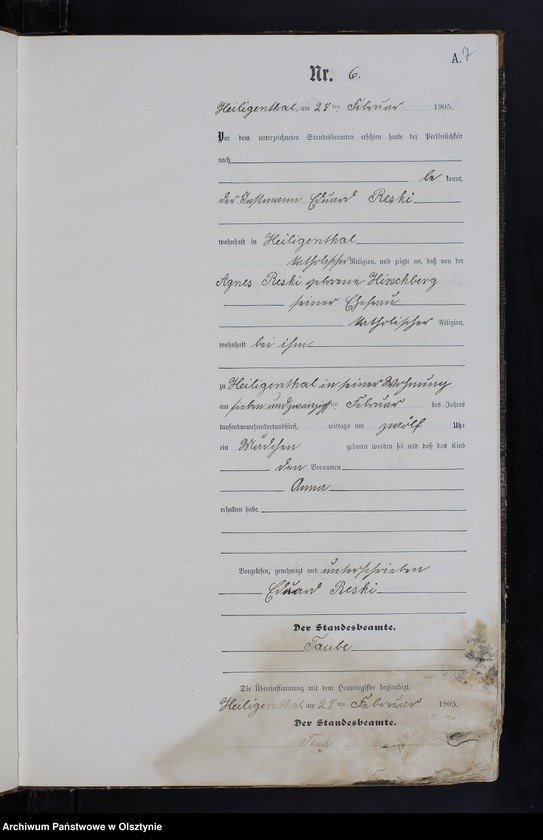 A. 7
Nr. 6.
Heiligenthal, am 28 ten Februar 1905.
Vor dem unterzeichneten Standesbeamten erschien heute der Persönlichkeit
nach
be kannt,
der Instmann Eduard Reski
wohnhaft in Heiligenthal
katholischer Religion, und zeigte an, daß von der
Agnes Reski geborene Hirschberg
seiner Ehefrau
katholischer Religion,
wohnhaft bei ihm
zu Heiligenthal in seiner Wohnung
am sieben und zwanzigsten Februar des Jahres
tausendneunhundertundfünf, mittags um zwölf Uhr
ein Mädchen geboren worden sei und daß das Kind
den Vornamen
Anna
erhalten habe.
Vorgelesen, genehmigt und unterschrieben
Eduard Reski
Der Standesbeamte.
Taube
Die Übereinstimmung mit dem Hauptregister beglaubigt.
Heiligenthal am 28 ten Februar 1905.
Der Standesbeamte.
Archiwum Państwowe w Olsztynie